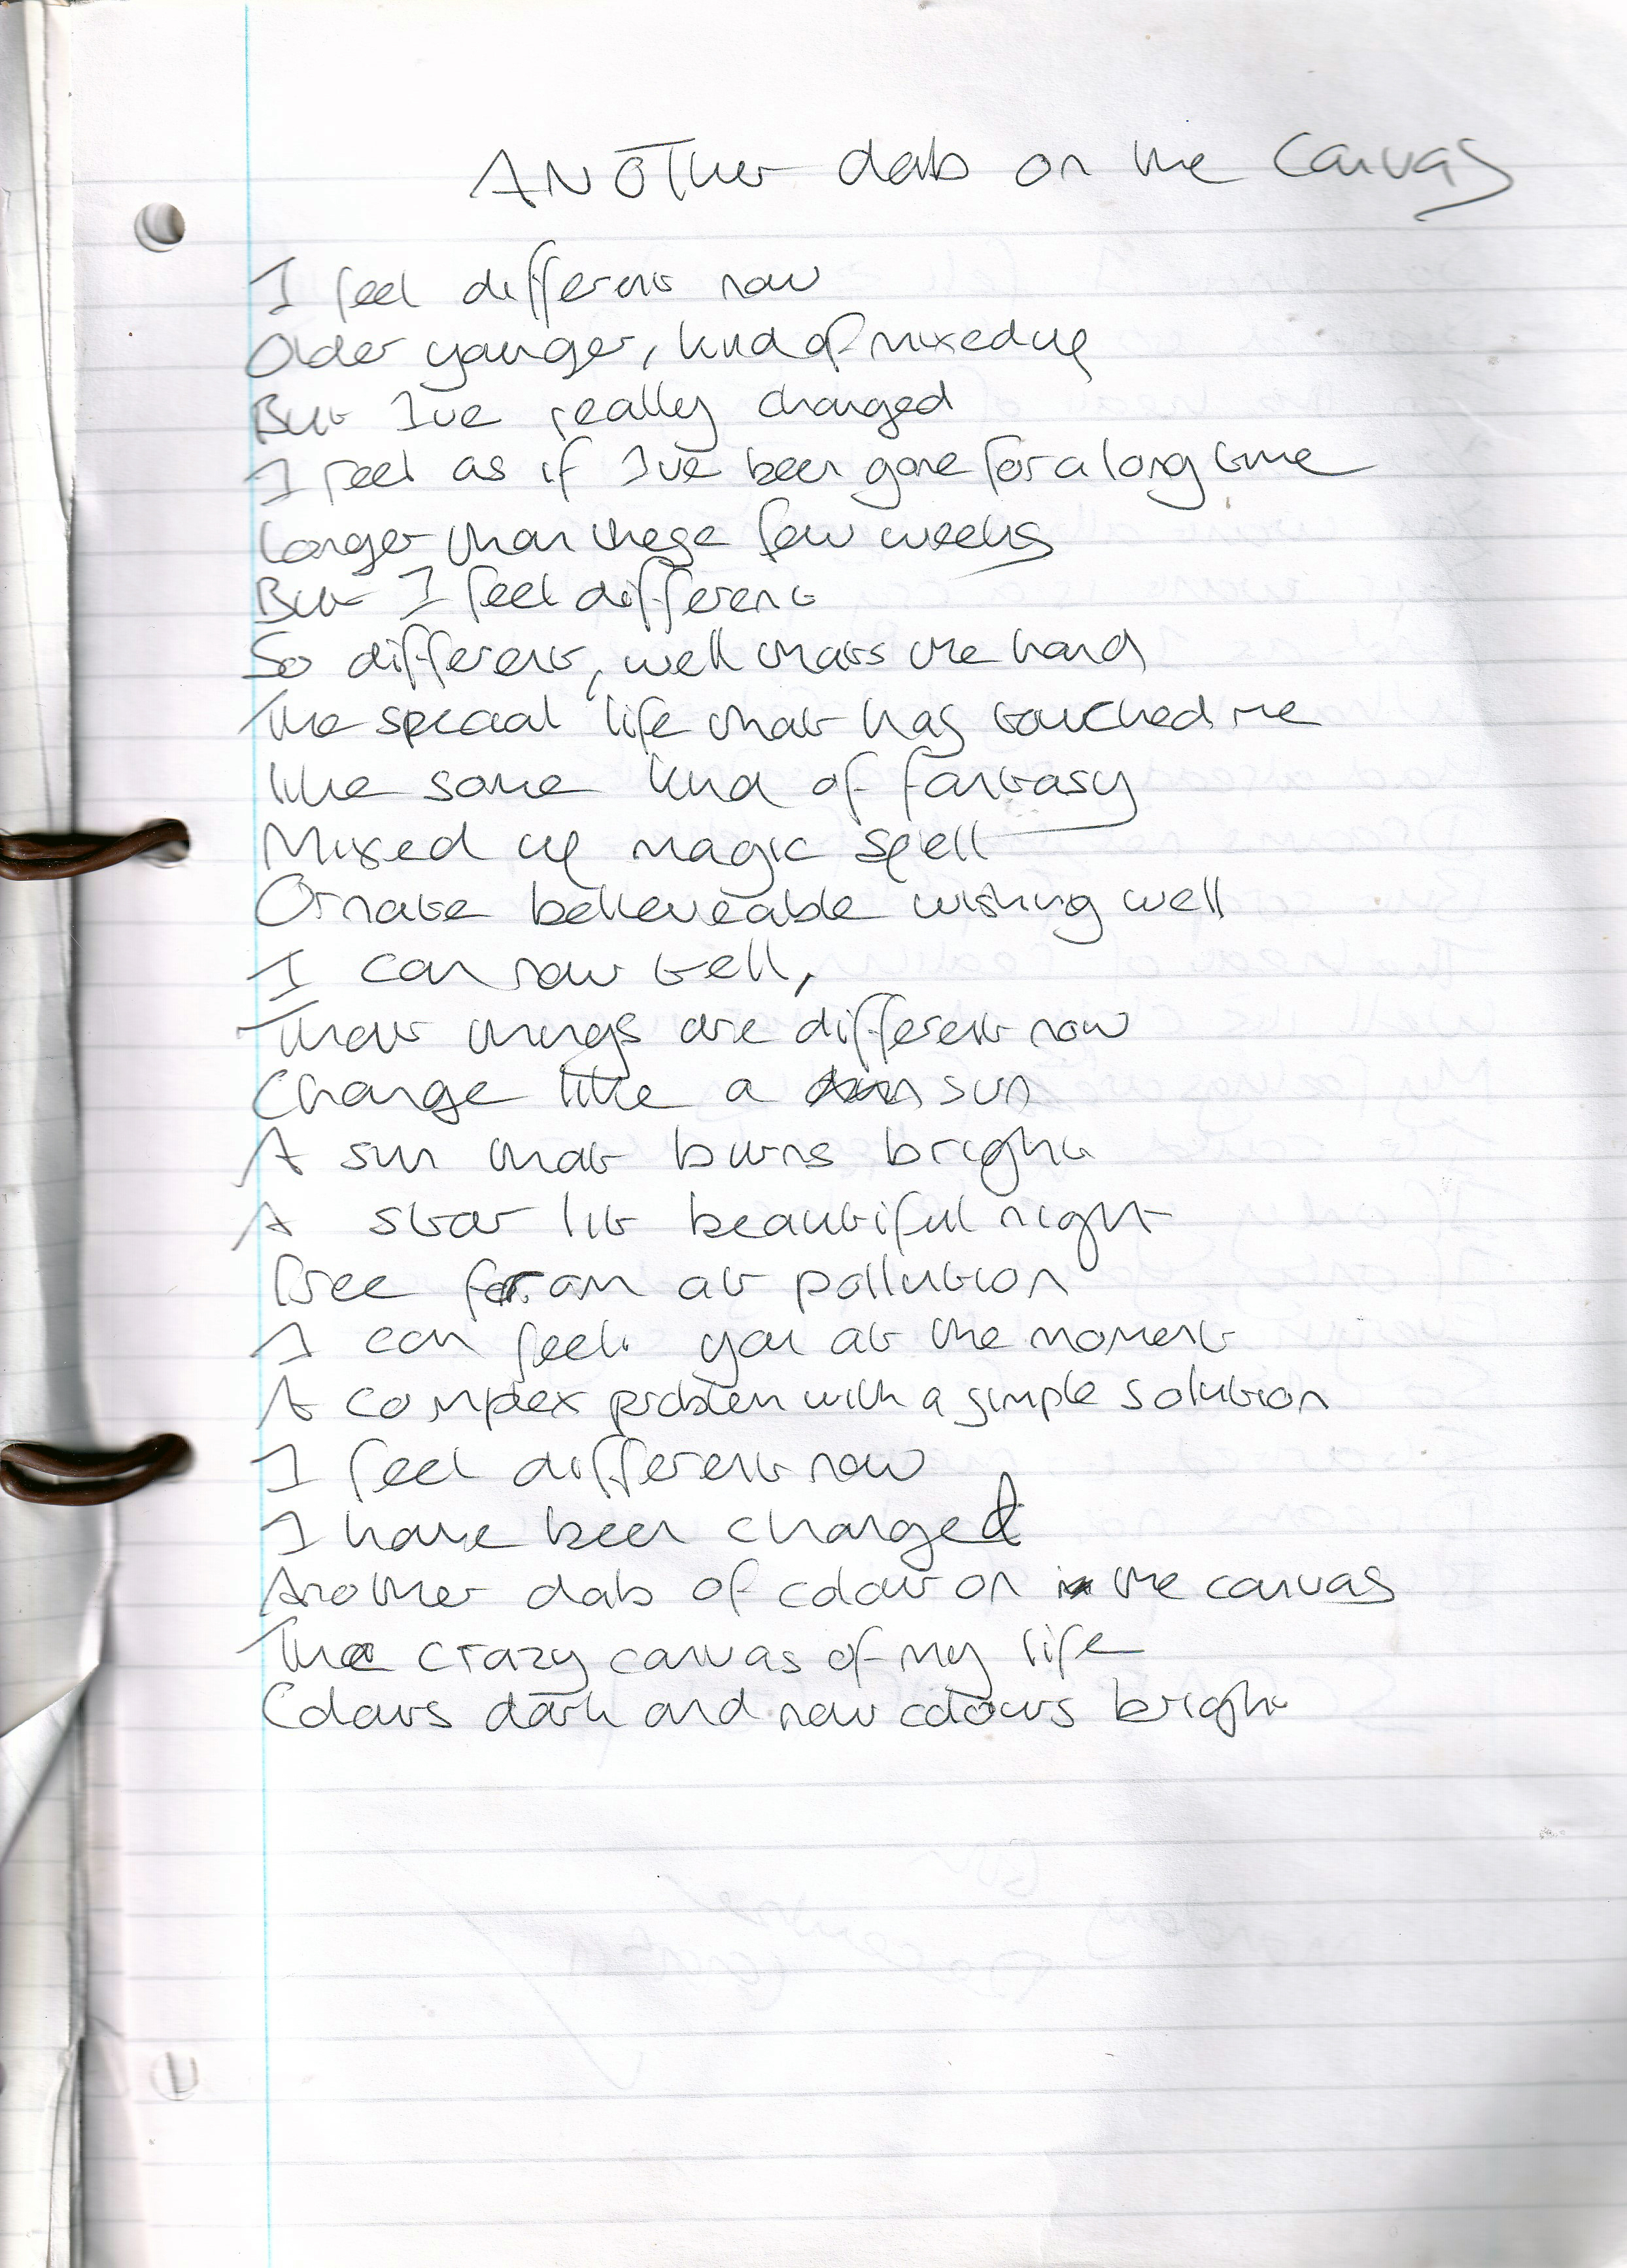 ANOTher dab on the canvas
I feel different now
Older younger, kind of mixed up
But Ive really changed
I feel as if I've been gone for a long time
Longer than these few weeks
But I feel different
So different, well thats the hand
The special life that has touched me
like some kind of fantasy
Mixed up magic spell
Ornate believeable wishing well
I can now tell,
That things are different now
Change like a sun
A sun that burns bright
A star lit beautiful night
Free at pollution
I can feel you at the moment
A complex problem with a simple solution
I feel different now
I have been changed
Another dab of colour on the canvas
The crazy canvas of my life
Colours dark and now colours bright